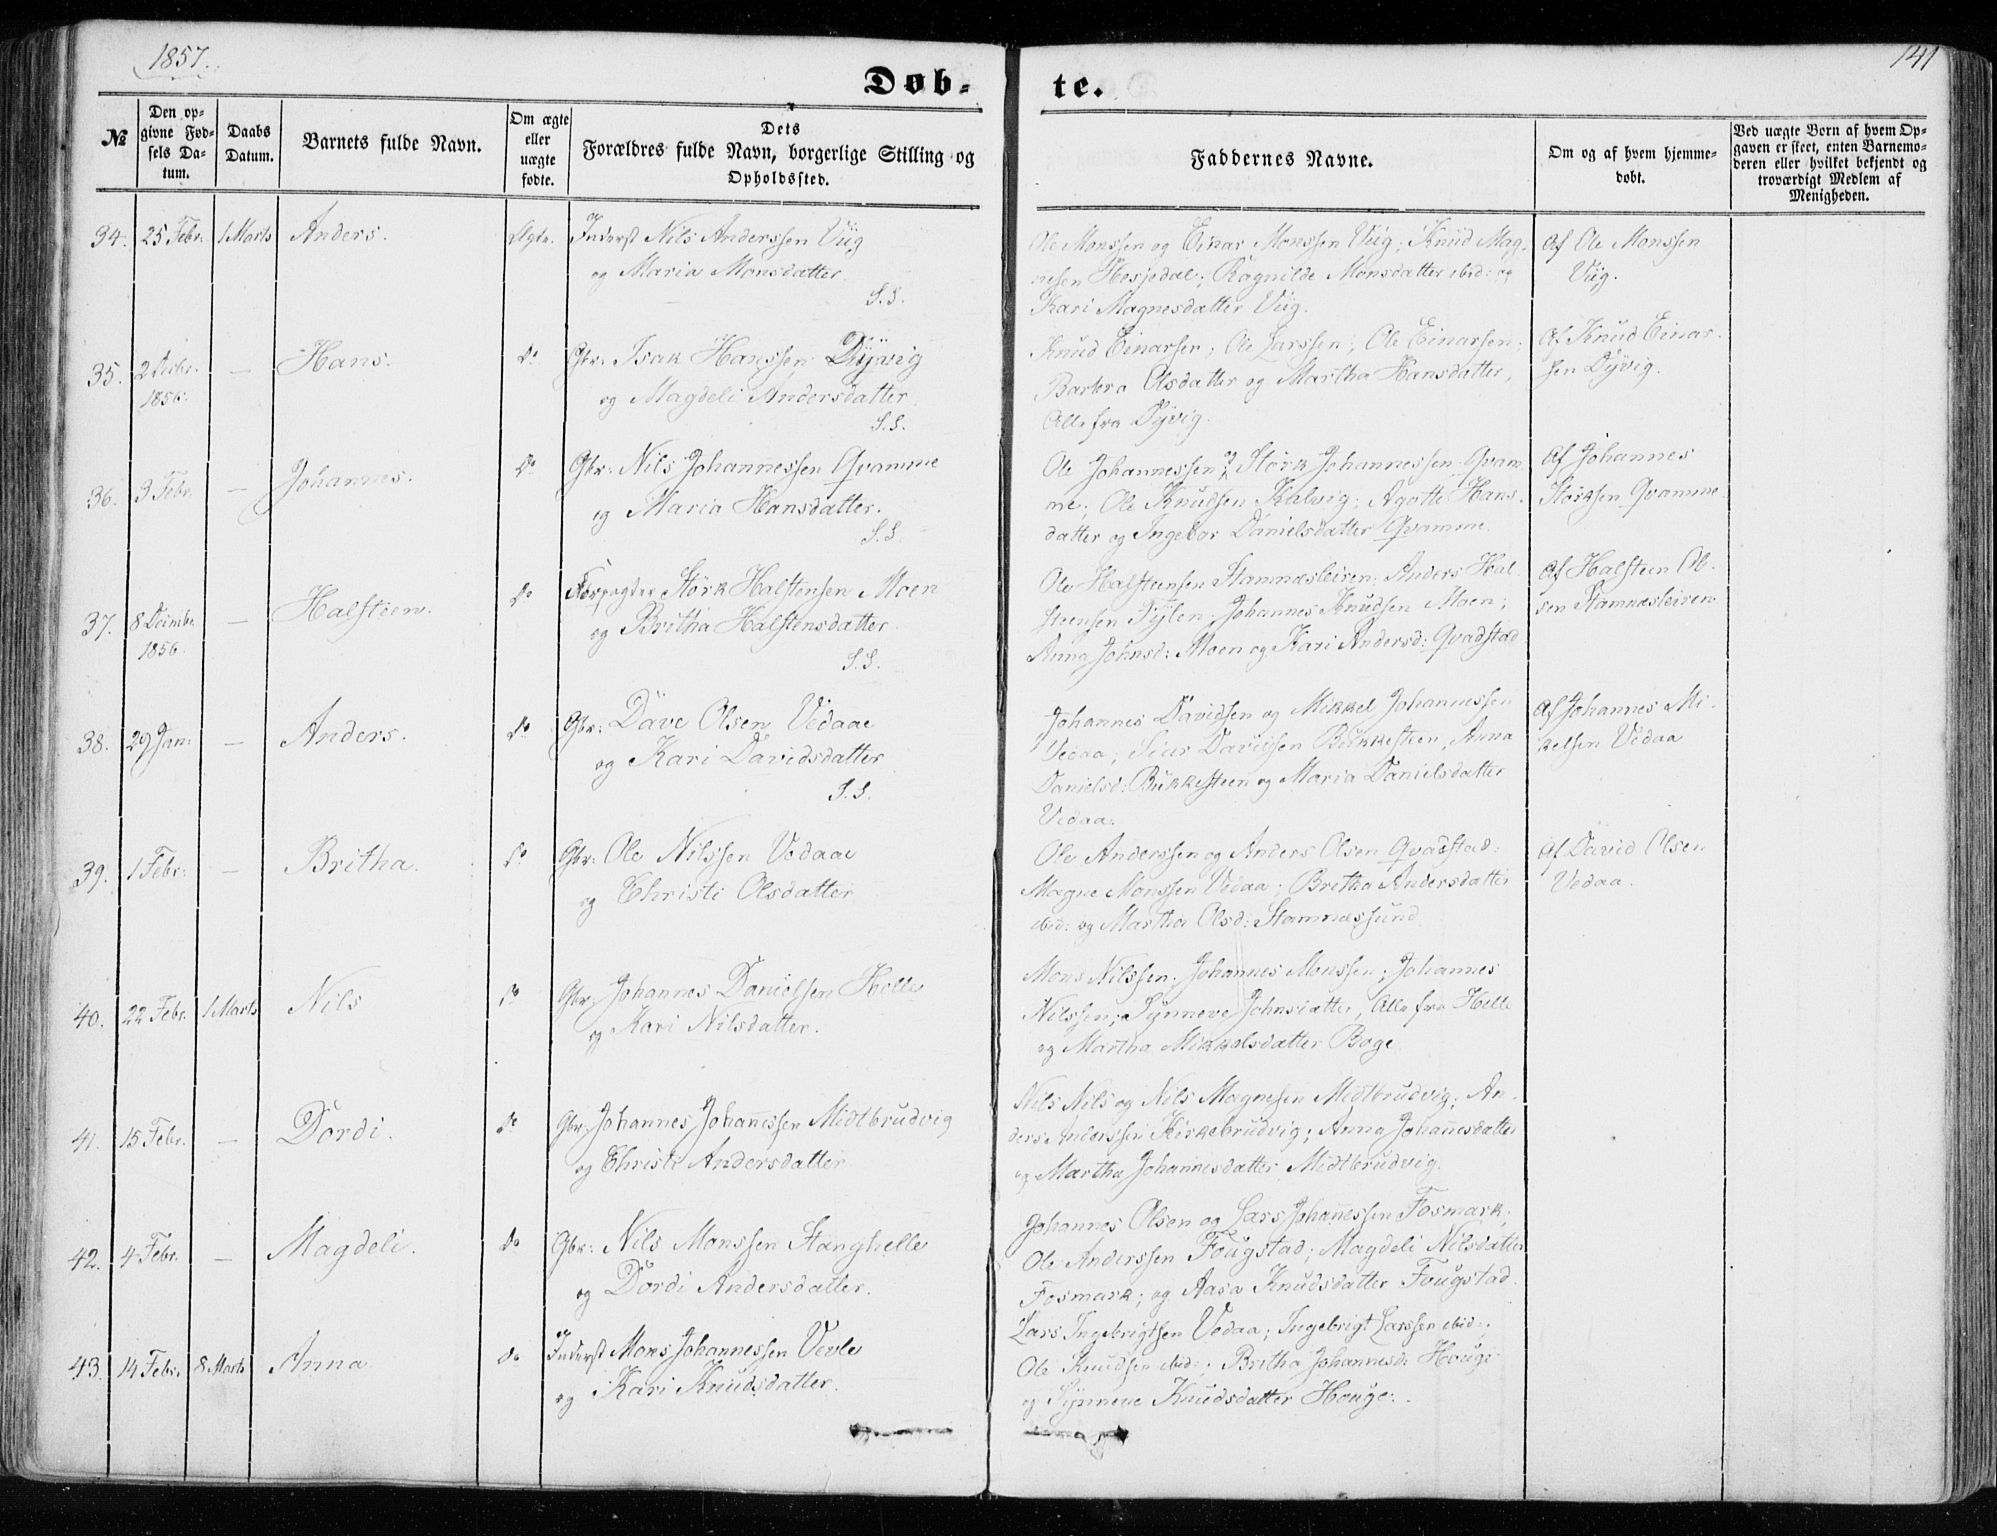 1857.
141
Døb-
te.
№
Den op-
givne Fød-
sels Da-
tum.
Daabs
Datum.
Barnets fulde Navn.
Om ægte
eller
uægte
fødte.
Dets
Forældres fulde Navn, borgerlige Stilling og
Opholdssted.
Faddernes Navne.
Om og af hvem hjemme-
døbt.
Ved uægte Børn af hvem Op-
gaven er skeet, enten Barnemo-
deren eller hvilket bekjendt og
troværdigt Medlem af
Menigheden.
34. 25 Febr. 1 Marts Anders. Ægte. Inderst Nils Anderssen Viig
og Maria Monsdatter
S.S.
Ole Monssen og Einar Monssen Viig; Knud Mag-
nesen Hesjedal; Ragnilde Monsdatter ibid: og
Kari Magnesdatter Viig.
Af Ole Monssen
Viig.
35. 2 Decbr.
1856.
— Hans. Do Gbr: Isak Hanssen Dyvig
og Magdeli Andersdatter
S.S.
Knud Einarsen; Ole Larssen; Ole Einarsen;
Barbra Olsdatter og Martha Hansdatter,
Alle fra Dyvig.
Af Knud Einar-
sen Dyvig.
36. 3 Febr. — Johannes. Do Gbr: Nils Johannessen Qvamme
og Maria Hansdatter.
S.S.
Ole Johannessen og Størk Johannessen Qvam-
me; Ole Knudsen Kalvig; Agatte Hans-
datter og Ingebor Danielsdatter Qvamme.
Af Johannes
Størksen Qvamme.
37. 8 Decmbr.
1856.
— Halsteen. Do Forpagter Størk Halstensen Moen
og Britha Halstensdatter
S.S.
Ole Halsteensen Stamnæsleiren; Anders Hal-
steensen Tylen; Johannes Knudsen Moen;
Anna Johnsd: Moen og Kari Andersd: Qvadstad
Af Halsteen Ol-
sen Stamnæsleiren
38. 29 Jan: — Anders. Do Gbr: Dave Olsen Vedaae
og Kari Davidsdatter
S.S.
Johannes Davidsen og Mikkel Johannessen
Vedaa; Siur Davidsen Bukkesteen, Anna
Danielsd: Bukkesteen og Maria Danielsdatter
Vedaa.
Af Johannes Mi-
kelsen Vedaa
39. 1 Febr: — Britha. Do Gbr: Ole Nilssen Vedaae
og Christi Olsdatter
Ole Anderssen og Anders Olsen Qvadstad;
Magne Monssen Vedaa; Britha Andersdatter
ibid: og Martha Olsd: Stamnæssund.
Af David Olsen
Vedaa.
40. 22 Febr. 1 Marts Nils Do Gbr: Johannes Danielsen Helle
og Kari Nilsdatter.
Mons Nilssen; Johannes Monssen; Johannes
Nilssen; Synneve Johnsdatter, Alle fra Helle
og Martha Mikkelsdatter Boge.
41. 15 Febr. — Dordi. Do Gbr: Johannes Johanessen Midtbrudvig
og Christi Andersdatter
Nils Nils og Nils Magnesen Midtbrudvig; An-
ders Anderssen Kirkebrudvig; Anna Johanesdatter
og Martha Johannesdatter Midtbrudvig.
42. 4 Febr. — Magdeli. Do Gbr: Nils Monssen Stanghelle
og Dordi Andersdatter.
Johannes Olsen og Lars Johanessen Fosmark;
Ole Anderssen Fougstad; Magdeli Nilsdatter
Fosmark; og Aasa Knudsdatter Fougstad.
43. 14 Febr. 8 Marts Anna Do Inderst Mons Johannessen Vevle
og Kari Knudsdatter.
Lars Ingebrigtsen Vedaa; Ingebrigt Larssen ibid:;
Ole Knudsen ibid:; Britha Johannesd: Houge
og Synneve Knudsdatter Houge:.